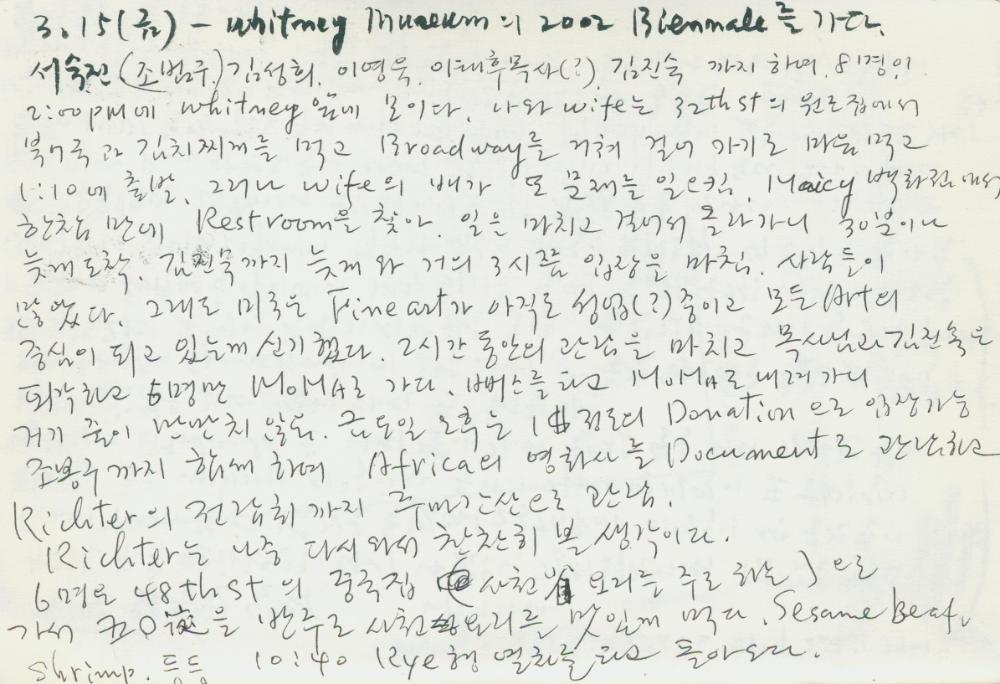 3.15(금) - Whitney Museum의 2002 Biennale를 가다.
서숙진 (조범주.) 김성희. 이영욱. 이태후목사(?). 김진숙 까지 하여. 8명이
2:00pm에 whitney 앞에 모이다. 나와 wife는 32th st의 원조집에서
북어국과 김치찌개를 먹고 Broadway를 거쳐 걸어 가기로 마음먹고
1:10에 출발. 그러나 wife의 배가 또 문제를 일으킴. Macy 백화점에서
한참 만에 Restroom을 찾아. 일은 마치고 걸어서 올라가니 30분이나
늦게 도착. 김진숙까지 늦게 와 거의 3시쯤 입장을 마침. 사람들이
많았다. 그래도 미국은 Fine art가 아직도 성업(?)중이고 모든 Art의
중심이 되고 있는게 신기했다. 2시간 동안의 관람을 마치고 목사님과 김진숙은
퇴각하고 6명만 MoMA로 가다. 버스를 타고 MoMA로 내려가니
거기 줄이 만만치 않음. 금요일 오후는 1$ 정도의 Donation으로 입장가능
까지 함께 하여 Africa의 영화사를 Document로 관람하고
Richter의 전람회까지 주마간산으로 관람.
Richter는 나중 다시 와서 찬찬히 볼 생각이다.
6명은 48th st의 중국집 (사천 요리를 주로 하는) 으로
가서 을 반주로 사천 요리를 맛있게 먹다. Sesame Beaf,
shrimp. 등등 10:40 Rye행 열차를 타고 돌아오다.